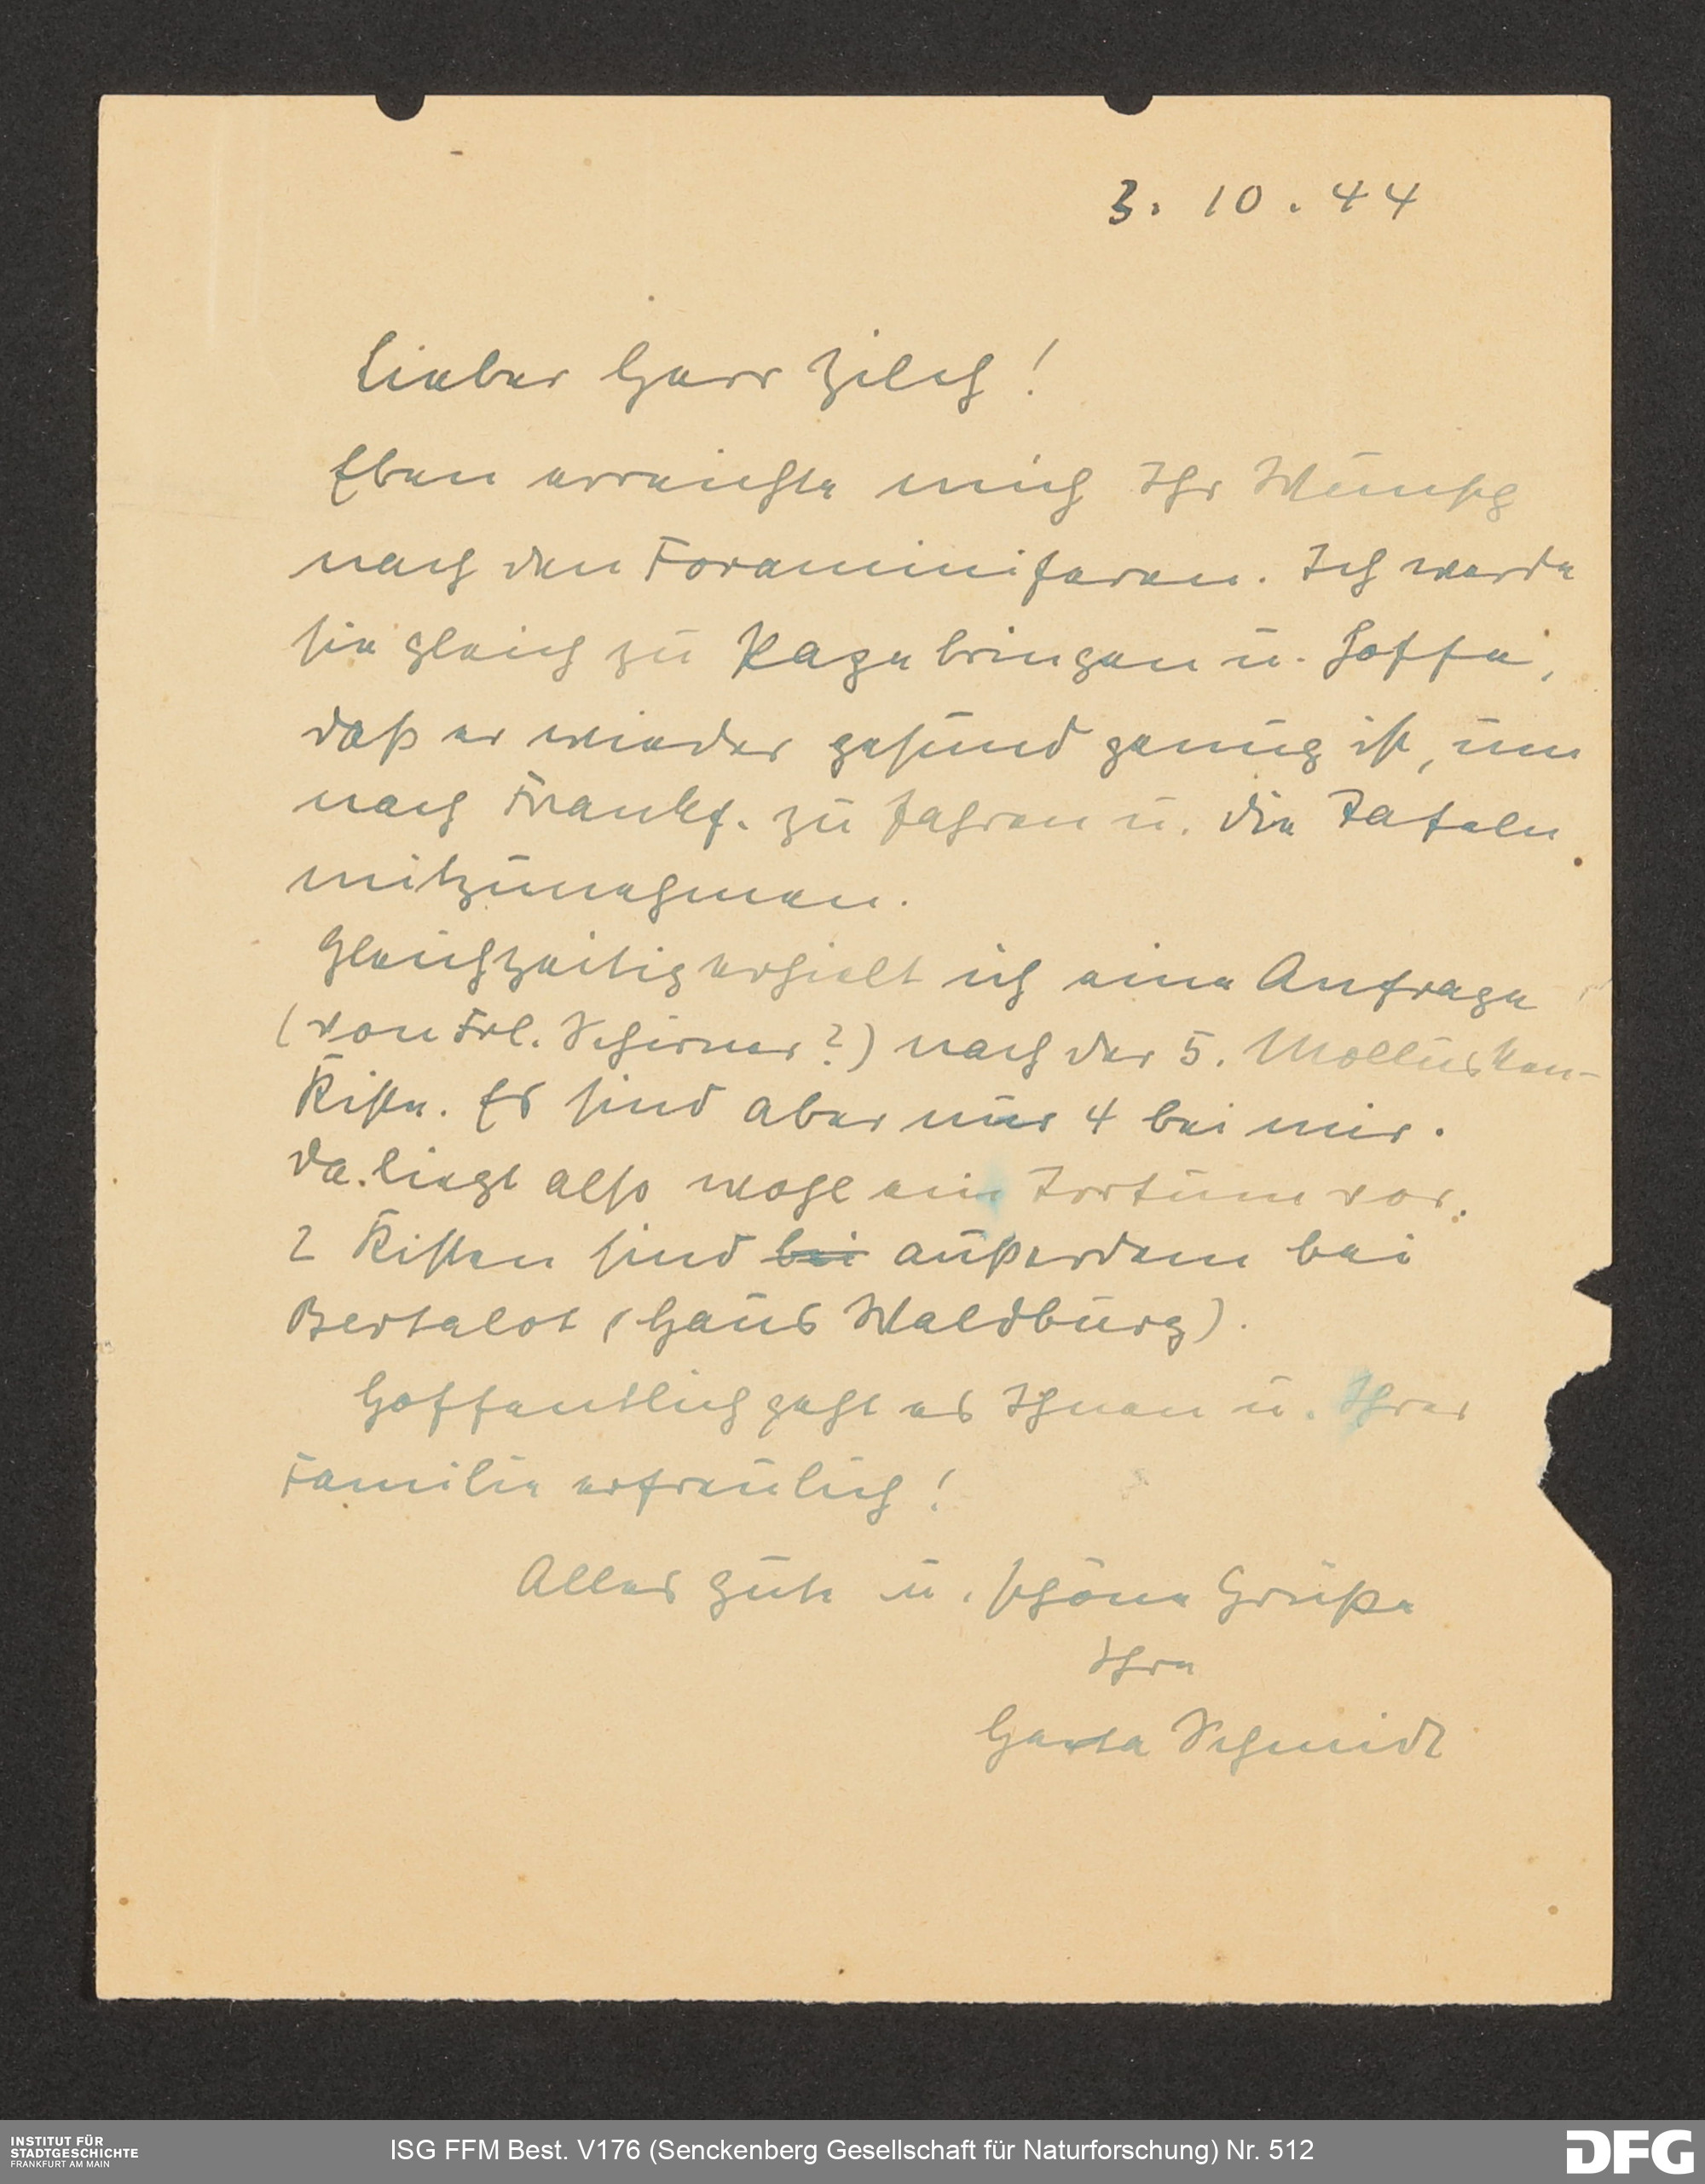 3. 10. 44
Lieber Herr Zilch!
Eben erreichte mich Ihr Wunsch
nach den Foraminiferen. Ich werde
sie gleich zu Page bringen u. hoffe,
daß er wieder gesund genug ist, um
nach Frankf. zu fahren u. die Tafeln
mitzunehmen.
Gleichzeitig erhielt ich eine Anfrage
(von Frl. Schirner?) nach der 5. Mollusken-
Kiste. Es sind aber nur 4 bei mir.
Da liegt also wohl ein Irrtum vor.
2 Kisten sind bei außerdem bei
Bertalot (Haus Waldburg).
Hoffentlich geht es Ihnen u. Ihrer
Familie erfreulich!
Alles Gute u. schöne Grüße
Ihre
Herta Schmidt
INSTITUT FÜR
STADTGESCHICHTE
FRANKFURT AM MAIN
ISG FFM Best. V176 (Senckenberg Gesellschaft für Naturforschung) Nr. 512
DFG